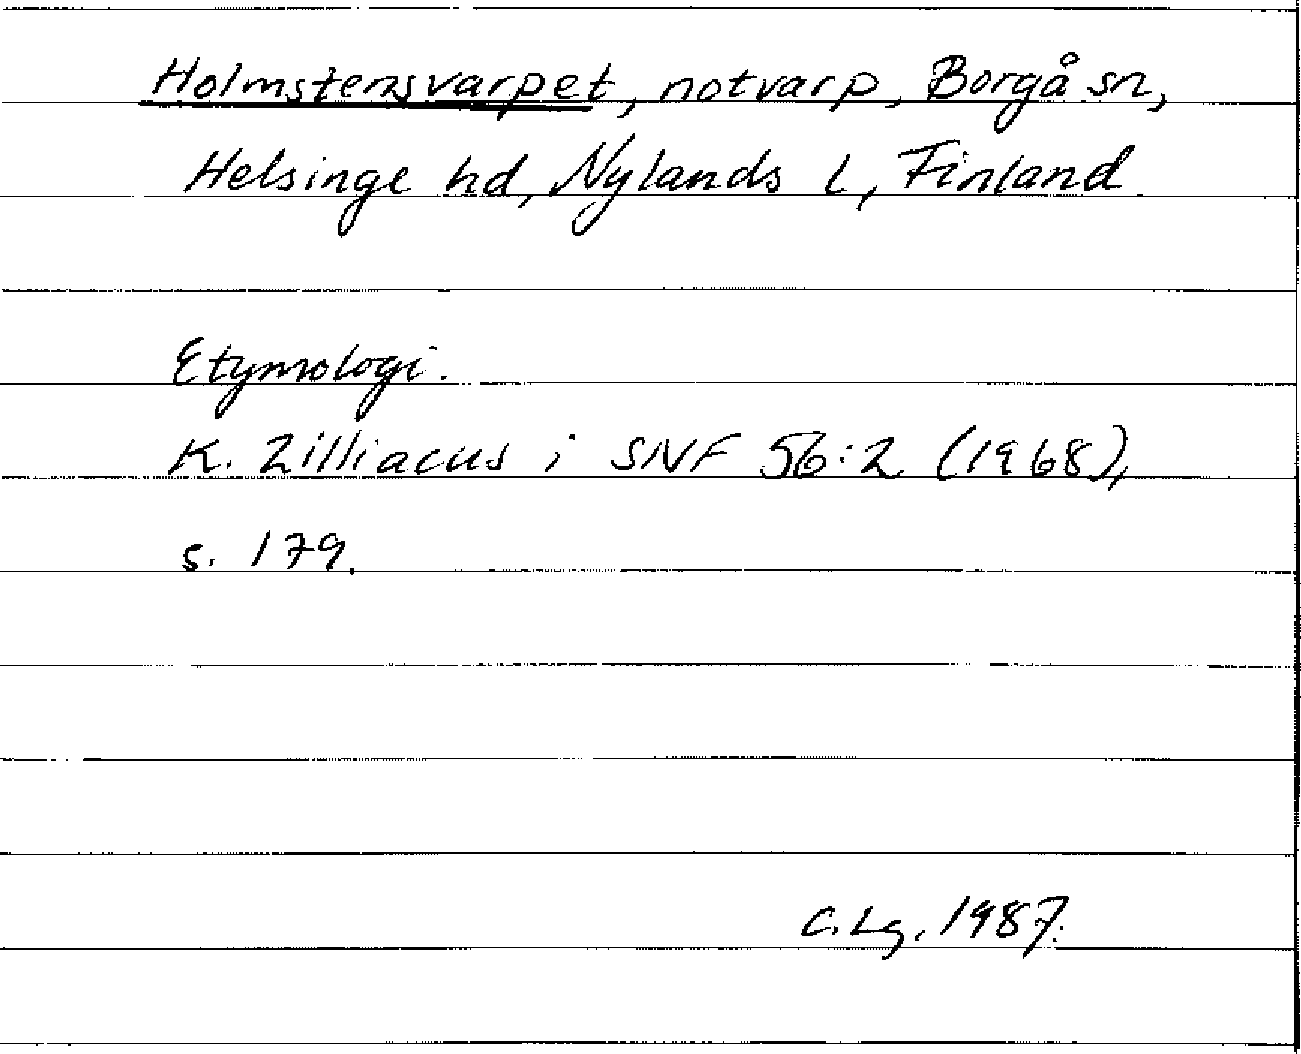 Holmstensvarpet, notvarp, Borgå sn,
Helsinge hd, Nylands l, Finland
Etymologi.
K. Zilliacus i SNF 56:2 (1968),
s. 179.
C. Lg. 1987.